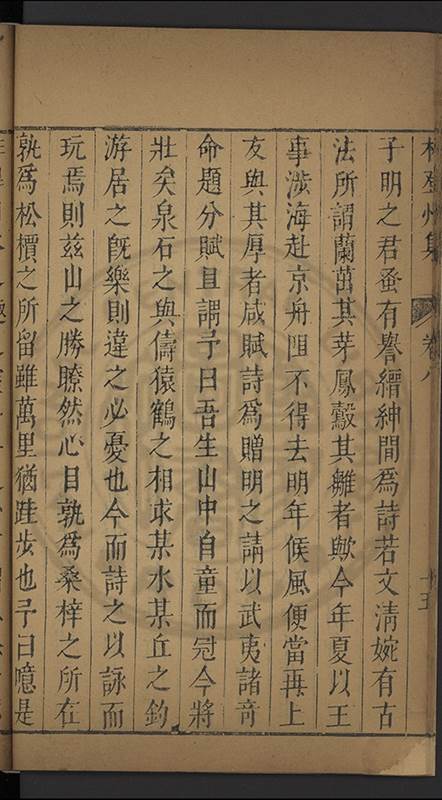 林登州集 卷八 十五
子明之君蚤有譽縉紳間為詩若文清婉有古
法所謂蘭茁其芽鳳鷇其雛者歟今年夏以王
事涉海赴京舟阻不得去明年候風便當再上
友與其厚者咸賦詩為贈明之請以武夷諸奇
命題分賦且謂予曰吾生山中自童而冠今將
壯矣泉石之與儔猿鶴之相求某水某丘之釣
游居之旣樂則違之必憂也今而詩之以詠而
玩焉則茲山之勝瞭然心目孰為桑梓之所在
孰為松檟之所留雖萬里猶跬步也予曰噫是